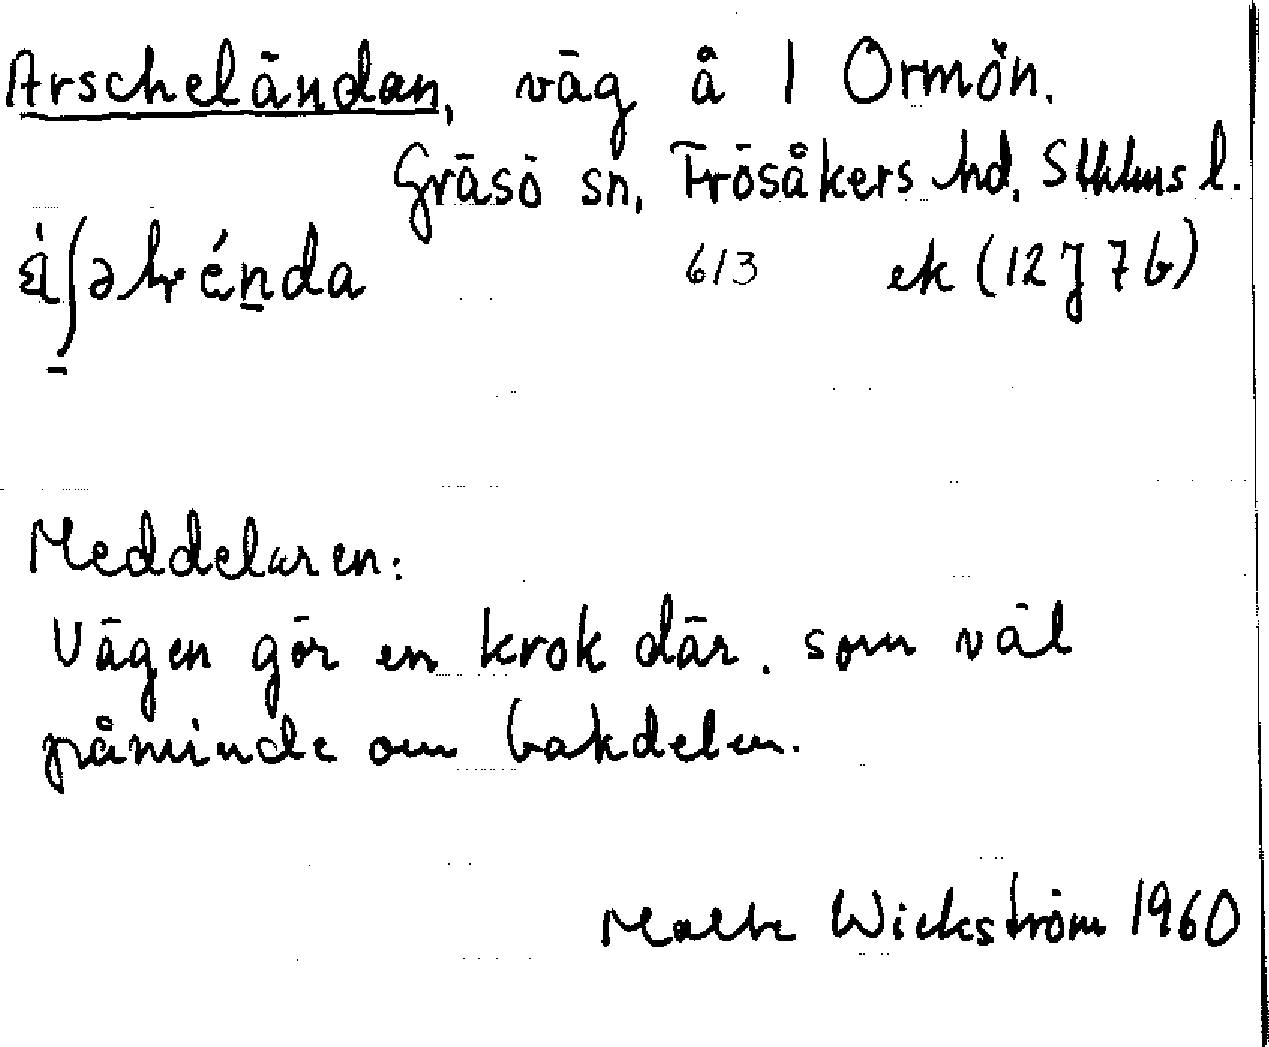 Arscheländan, väg å 1 Ormön.
Gräsö sn, Frösåkers hd, Sthlms l.
613 ek (12J 7b)
Meddelaren:
Vägen gör en krok där. som väl
påminde om bakdelen.
Malte Wickström 1960